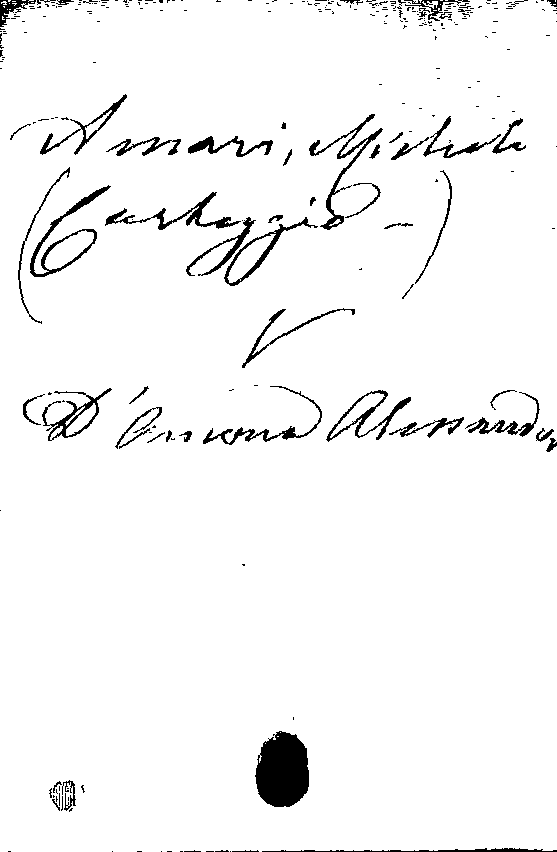 Amari, Michele
(Carteggio -)
V
D'Ancona Alessandro